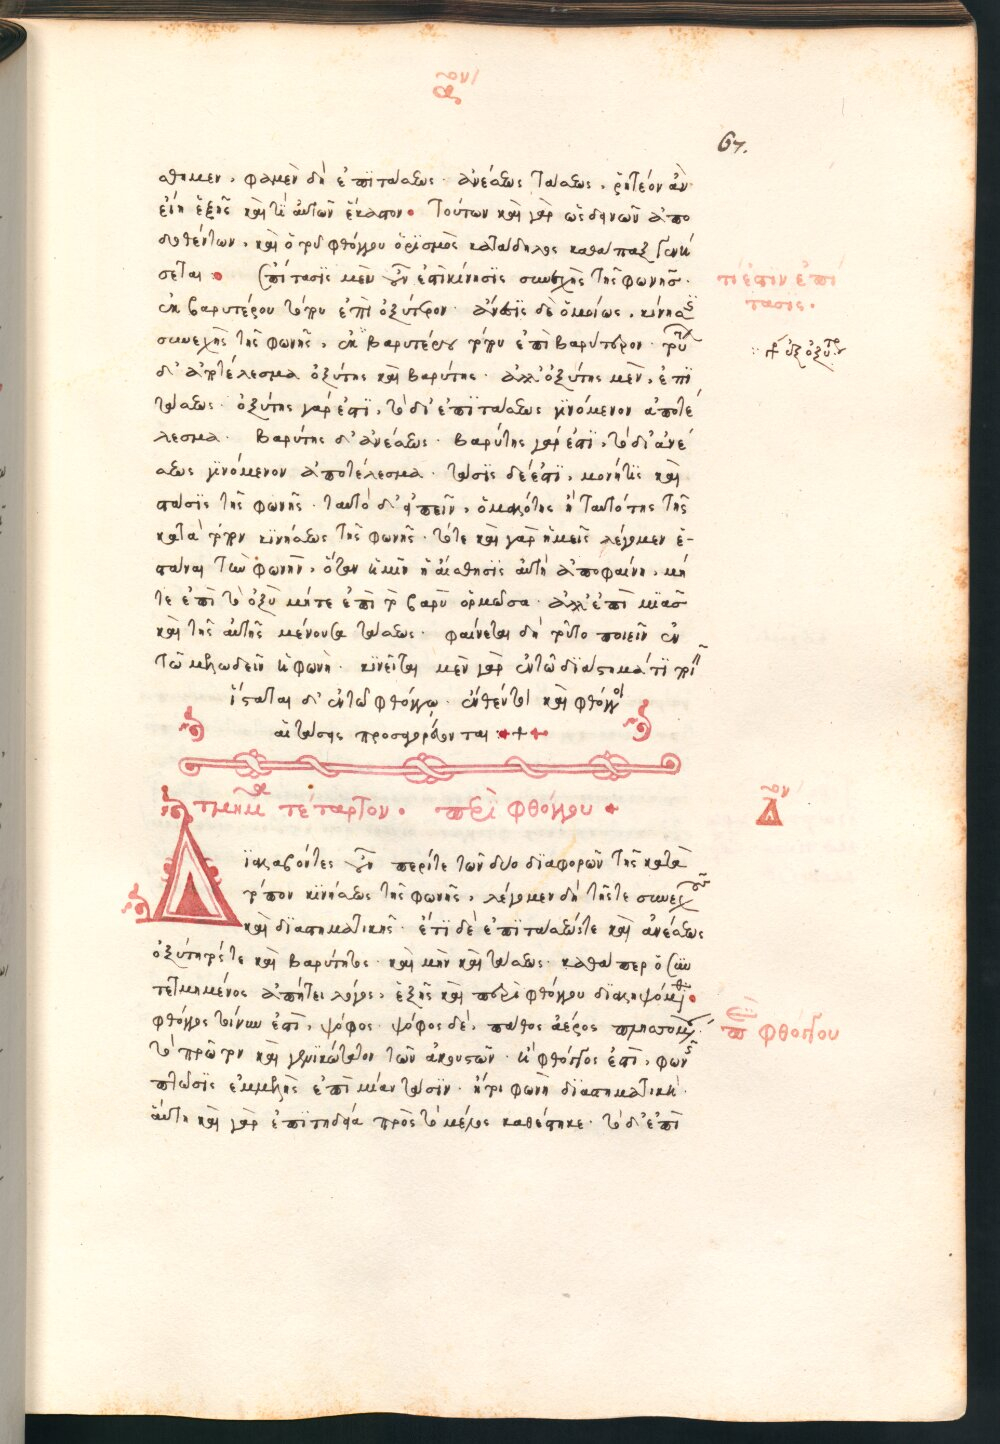 ον
α
67.
θημεν, φαμὲν δὴ ἐπιτάσεως ἀνέσεως τάσεως, ῥητέον ἂν
εἴη ἑξῆς καὶ τί αὐτῶν ἕκαστον. Τούτων καὶ γὰρ ὡς δηνῶν ἀπο
δοθέντων, καὶ ὁ τοῦ φθόγγου ὁρισμὸς κατάδηλος καθάπαξ γενή
σεται. Ἐπίτασις μὲν οὖν ἐστὶ κίνησις συνεχὴς τῆς φωνῆς
ἐκ βαρυτέρου τόπου ἐπὶ ὀξύτερον. ἄνεσις δὲ ὁμοίως, κίνησις
συνεχὴς τῆς φωνῆς, ἐκ βαρυτέρου τόπου ἐπὶ βαρύτερον. τούτων
δ' ἀποτέλεσμα ὀξύτης καὶ βαρύτης. ἀλλ' ὀξύτης μὲν, ἐπι
τάσεως. ὀξύτης γάρ ἐστι, τὸ δι' ἐπιτάσεως γινόμενον ἀποτέ
λεσμα. βαρύτης δ' ἀνέσεως. βαρύτης γάρ ἐστι, τὸ δι' ἀνέ
σεως γινόμενον ἀποτέλεσμα. τάσις δέ ἐστι, μονή τις καὶ
στάσις τῆς φωνῆς. ταυτὸ δ' εἰπεῖν, ὁμαλότης ἢ ταυτότης τῆς
κατὰ τόπον κινήσεως τῆς φωνῆς. τότε καὶ γὰρ ἡμεῖς λέγομεν ἑ-
στάναι τὴν φωνὴν, ὅταν ἡμῖν ἡ αἴσθησις αὐτὴν ἀποφαίνῃ, μή
τε ἐπὶ τὸ ὀξὺ μήτε ἐπὶ τὸ βαρὺ ὁρμῶσα. ἀλλ' ἐπὶ μιᾶς
καὶ τῆς αὐτῆς μένουσα τάσεως. φαίνεται δὴ τοῦτο ποιεῖν ἐν
τῷ μελῳδεῖν ἡ φωνή. κινεῖται μὲν γὰρ ἐν τῷ διάστημά τι ποιεῖν
ἵσταται δ' ἐν τῷ φθόγγῳ. ἐνθέν τοι καὶ φθόγγοι
αἱ τάσεις προσηγορεύονται
τμῆμα τέταρτον. περὶ φθόγγου
Διαλαβόντες οὖν περί τε τῶν δύο διαφορῶν τῆς κατὰ
τόπον κινήσεως τῆς φωνῆς, λέγομεν δὴ τῆς τε συνεχοῦς
καὶ διαστηματικῆς. ἔτι δὲ ἐπιτάσεώς τε καὶ ἀνέσεως
ὀξύτητός τε καὶ βαρύτητος. καὶ μὴν καὶ τάσεως. καθάπερ ὁ συν
τετμημένος ἀπῄτει λόγος, ἑξῆς καὶ περὶ φθόγγου διαληψόμεθα.
φθόγγος τοίνυν ἐστὶ, ψόφος. ψόφος δὲ, πάθος ἀέρος πλησσομένου.
τὸ πρῶτον καὶ γενικώτατον τῶν ἀκουστῶν. ἢ φθόγγος ἐστὶ, φωνῆς
πτῶσις ἐμμελὴς ἐπὶ μίαν τάσιν. ἤτοι φωνὴ διαστηματική.
αὕτη καὶ γὰρ ἐπιτηδεία πρὸς τὸ μέλος καθέστηκε. τὸ δ' ἐπὶ
τί ἐστιν ἐπί
τασις.
ἐξ ὀξυτέρου
Δον
τί φθόγγου